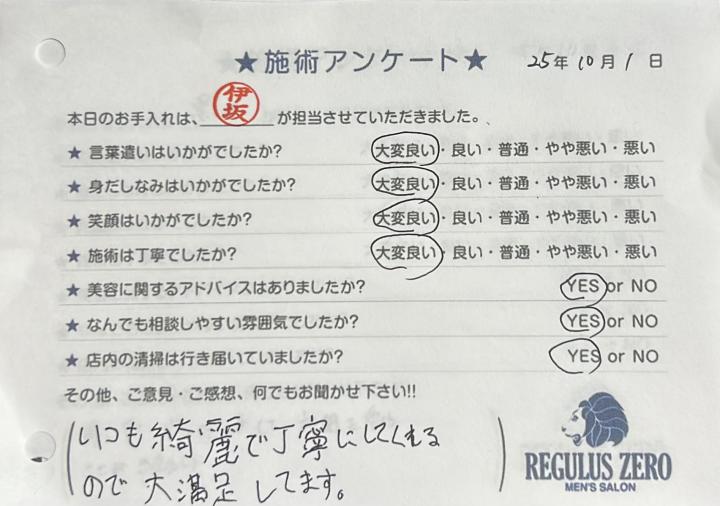 ★施術アンケート★ 25年10月1日
本日のお手入れは、伊坂が担当させていただきました。
★ 言葉遣いはいかがでしたか? 大変良い・良い・普通・やや悪い・悪い
★ 身だしなみはいかがでしたか? 大変良い・良い・普通・やや悪い・悪い
★ 笑顔はいかがでしたか? 大変良い・良い・普通・やや悪い・悪い
★ 施術は丁寧でしたか? 大変良い・良い・普通・やや悪い・悪い
★ 美容に関するアドバイスはありましたか? YES or NO
★ なんでも相談しやすい雰囲気でしたか? YES or NO
★ 店内の清掃は行き届いていましたか? YES or NO
その他、ご意見・ご感想、何でもお聞かせ下さい!!
いつも綺麗で丁寧にしてくれる
ので大満足してます。
REGULUS ZERO
MEN'S SALON